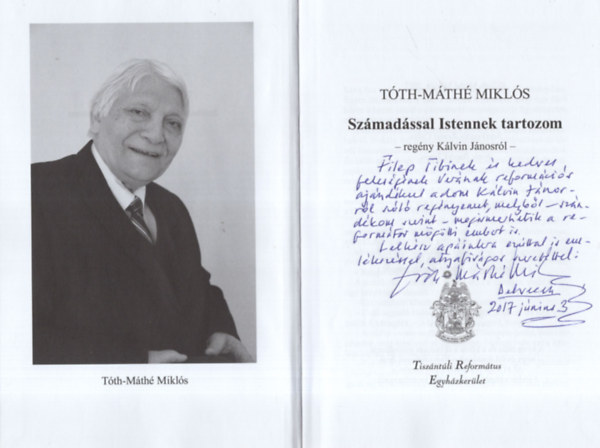 Tóth-Máthé Miklós
TÓTH-MÁTHÉ MIKLÓS
Számadással Istennek tartozom
– regény Kálvin Jánosról –
Filep Tibinek és kedves
feleségének Verának reformációs
ajándékul adom Kálvin János-
ról szóló regényemet, melyből – szán-
dékom szerint – megismerhetik a re-
formátor mögötti embert is.
Lelkész apáinkra ezúttal is em-
lékezéssel, atyafiságos szeretettel:
Tóth-Máthé Miklós
Debrecen
2017 június 3
Tiszántúli Református
Egyházkerület